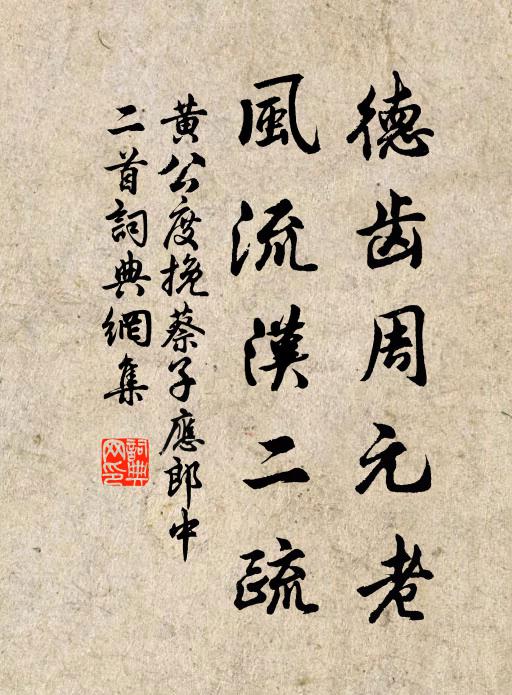 德齿周元老
風流漢二疏
黃公度挽蔡子應郎中
二首詞典網集
詞典网印